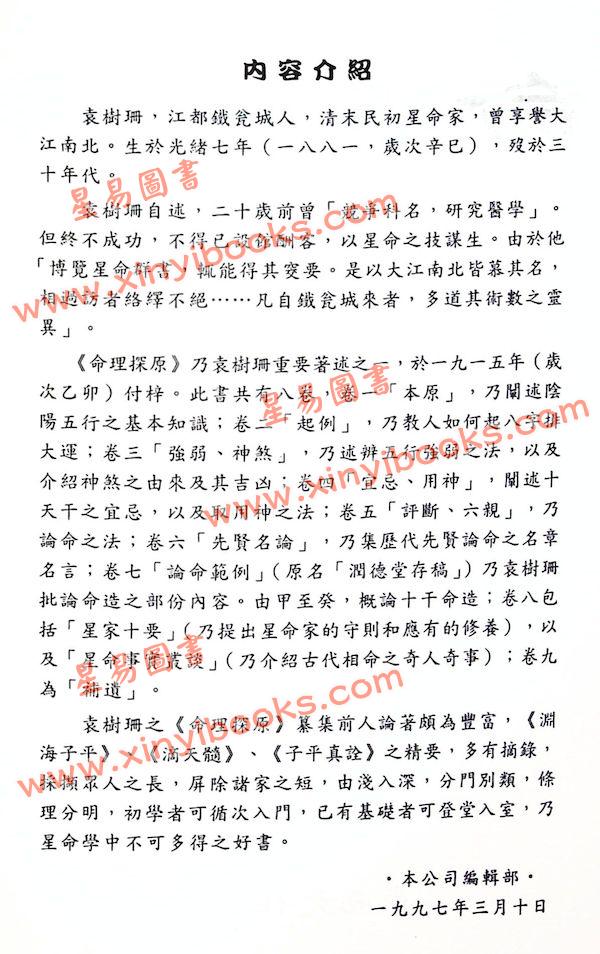 內容介紹
袁樹珊，江都鐵甕城人，清末民初星命家，曾享譽大
江南北。生於光緒七年（一八八一，歲次辛巳），歿於三
十年代。
袁樹珊自述，二十歲前曾「競事科名，研究醫學」。
但終不成功，不得已設館酬客，以星命之技謀生。由於他
「博覽星命群書，輒能得其窔要。是以大江南北皆慕其名，
相過訪者絡繹不絕……凡自鐵瓮城來者，多道其術數之靈
異」。
《命理探原》乃袁樹珊重要著述之一，於一九一五年（歲
次乙卯）付梓。此書共有八卷，卷一「本原」，乃闡述陰
陽五行之基本知識；卷二「起例」，乃教人如何起八字排
大運；卷三「強弱、神煞」，乃述辨五行強弱之法，以及
介紹神煞之由來及其吉凶；卷四「宜忌、用神」，闡述十
天干之宜忌，以及取用神之法；卷五「評斷、六親」，乃
論命之法；卷六「先賢名論」，乃集歷代先賢論命之名章
名言；卷七「論命範例」（原名「潤德堂存稿」）乃袁樹珊
批論命造之部份內容。由甲至癸，概論十干命造；卷八包
括「星家十要」（乃提出星命家的守則和應有的修養），以
及「星命事實叢談」（乃介紹古代相命之奇人奇事）；卷九
為「補遺」。
袁樹珊之《命理探原》纂集前人論著頗為豐富，《淵
海子平》、《滴天髓》、《子平真詮》之精要，多有摘錄，
採擷眾人之長，屏除諸家之短，由淺入深，分門別類，條
理分明，初學者可循次入門，已有基礎者可登堂入室，乃
星命學中不可多得之好書。
・本公司編輯部・
一九九七年三月十日
星易圖書
www.xinyibooks.com
星易圖書
www.xinyibooks.com
星易圖書
www.xinyibooks.com